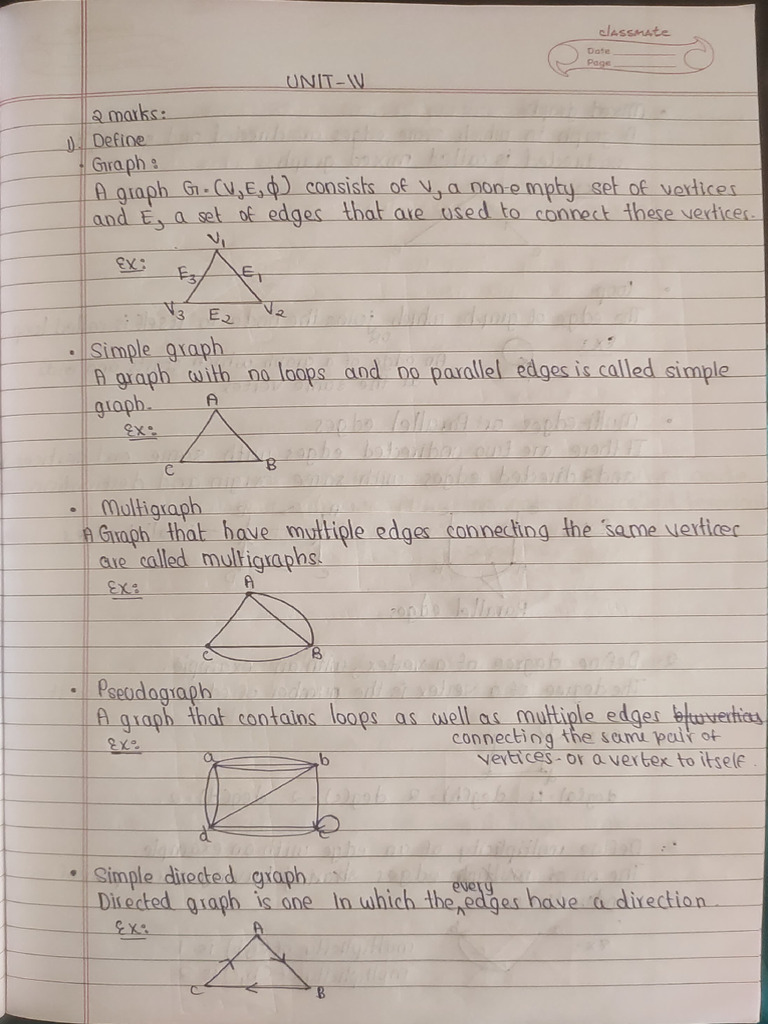 classmate
Date
Page
UNIT-IV
2 marks:
1) Define
· Graph:
A graph G=(V,E,φ) consists of V, a non-empty set of vertices
and E, a set of edges that are used to connect these vertices.
Ex:
V1
E3 E1
V3 E2 V2
• Simple graph
A graph with no loops and no parallel edges is called simple
graph.
Ex:
A
C B
• Multigraph
A Graph that have multiple edges connecting the same vertices
are called multigraphs.
Ex:
A
C B
• Pseudograph
A graph that contains loops as well as multiple edges b/w vertices
connecting the same pair of
vertices or a vertex to itself.
Ex:
a b
d c
• Simple directed graph
Directed graph is one in which the every edges have a direction.
Ex:
A
C B